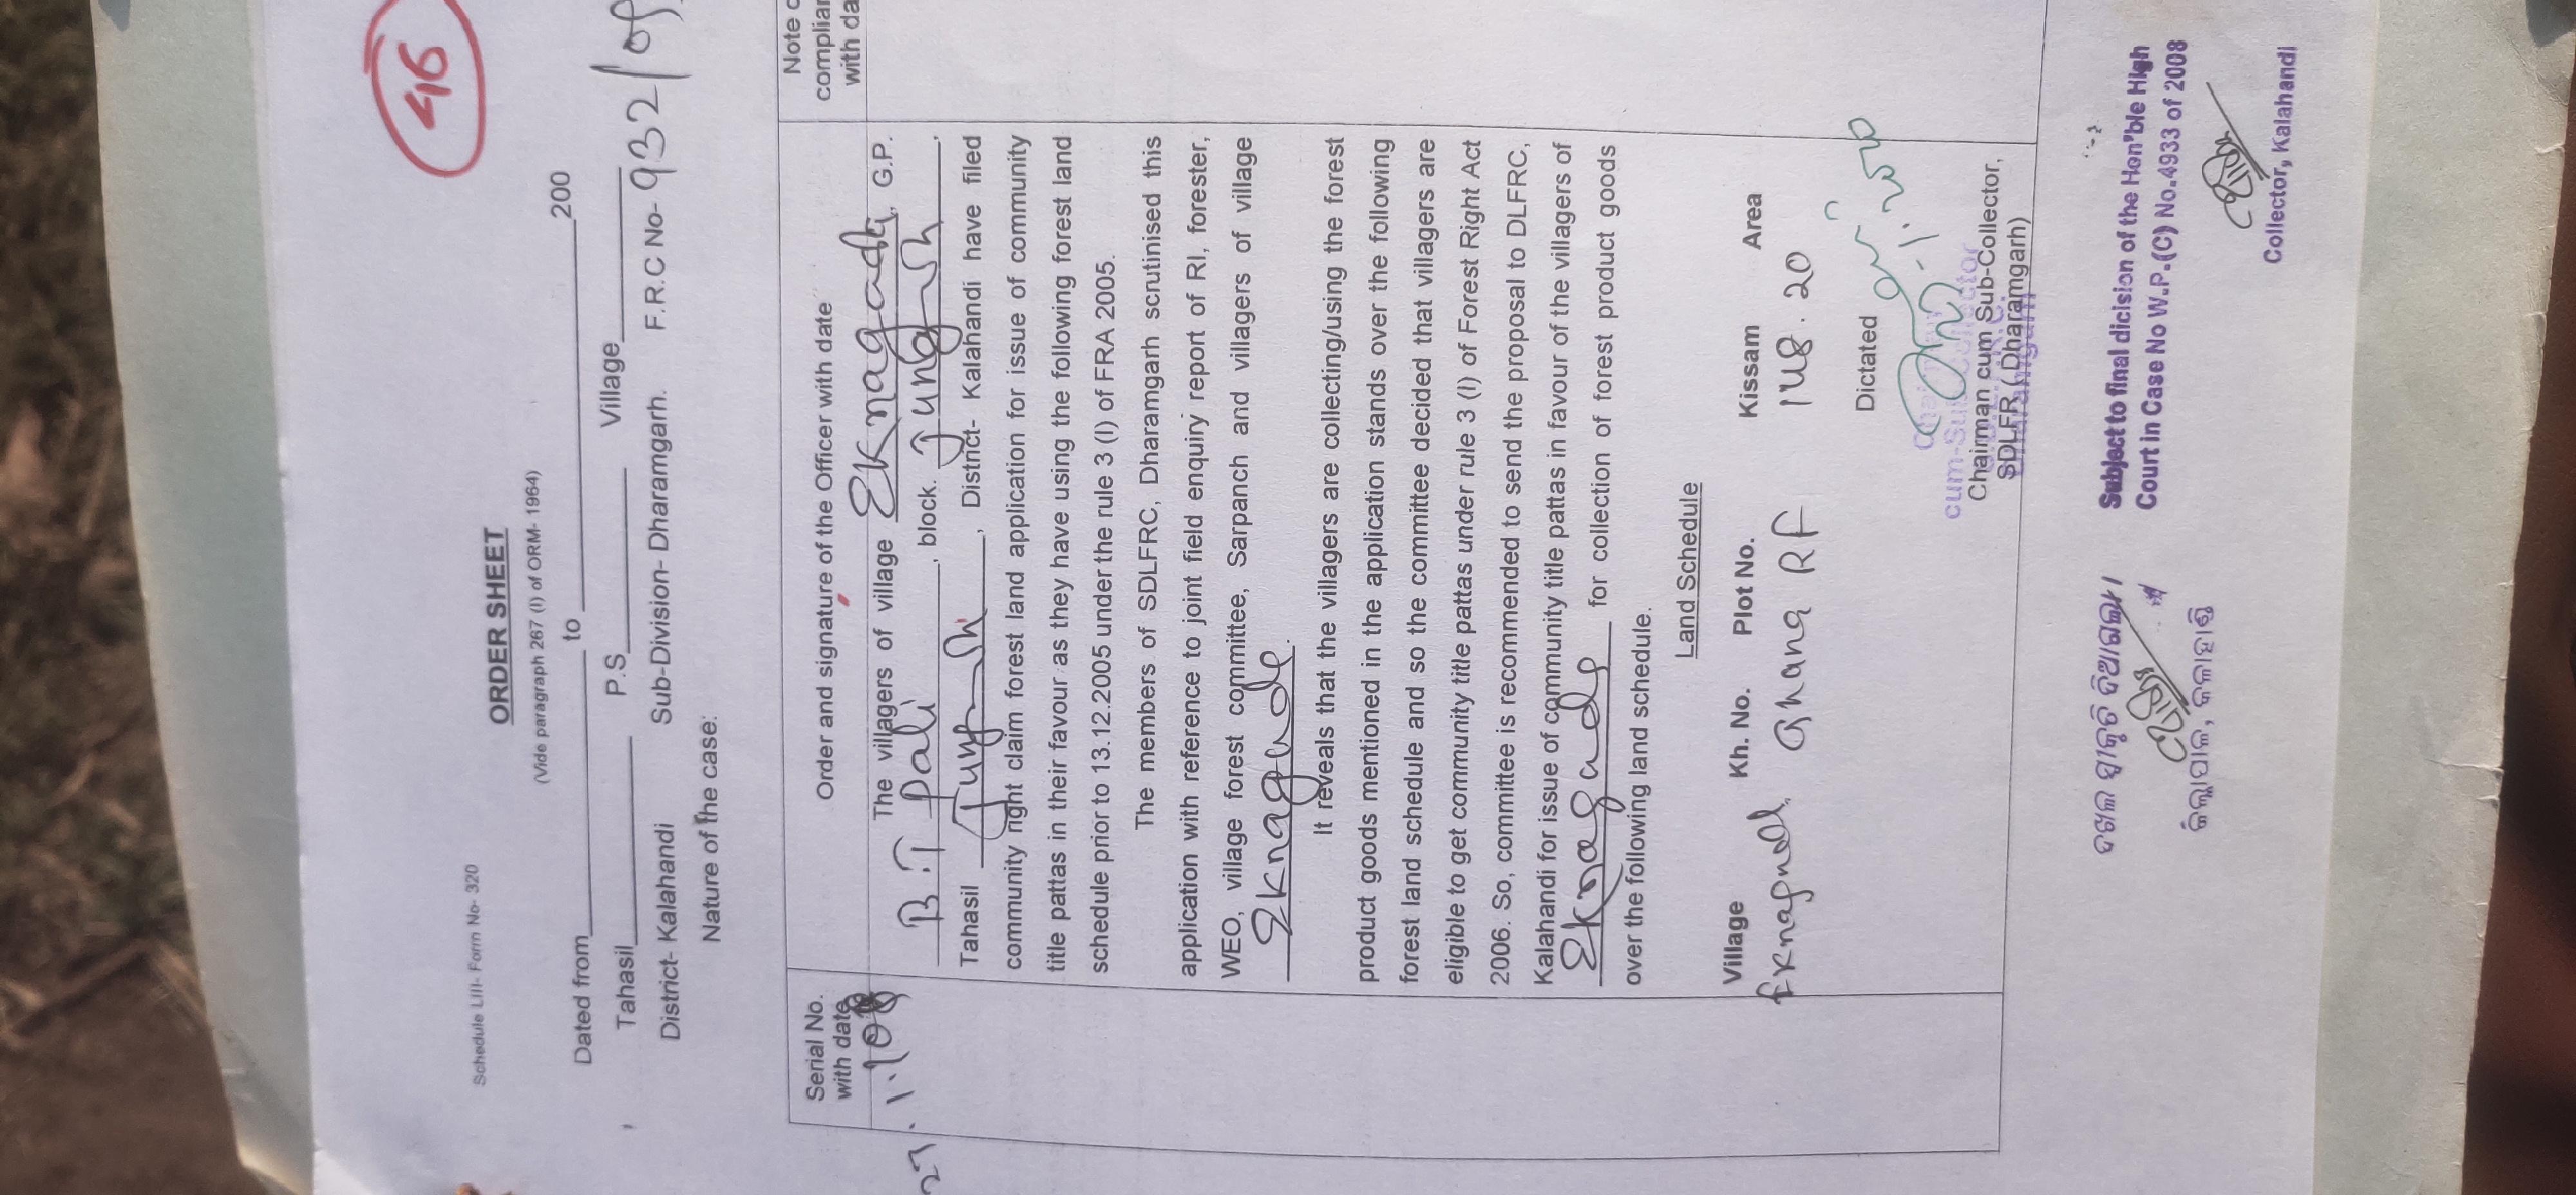 46
Schedule LIII- Form No- 320
ORDER SHEET
(Vide paragraph 267 (I) of ORM- 1964)
Dated from to 200
Tahasil P.S Village
District- Kalahandi Sub-Division- Dharamgarh. F.R.C No- 932/09
Nature of the case:
Serial No. with date
Order and signature of the Officer with date
Note complian with da
The villagers of village Eknaguda, G.P.
B.J Pali, block.
Tahasil , District- Kalahandi have filed
community right claim forest land application for issue of community
title pattas in their favour as they have using the following forest land
schedule prior to 13.12.2005 under the rule 3 (I) of FRA 2005.
The members of SDLFRC, Dharamgarh scrutinised this
application with reference to joint field enquiry report of RI, forester,
WEO, village forest committee, Sarpanch and villagers of village
Eknaguda.
It reveals that the villagers are collecting/using the forest
product goods mentioned in the application stands over the following
forest land schedule and so the committee decided that villagers are
eligible to get community title pattas under rule 3 (I) of Forest Right Act
2006. So, committee is recommended to send the proposal to DLFRC,
Kalahandi for issue of community title pattas in favour of the villagers of
Eknaguda for collection of forest product goods
over the following land schedule.
Land Schedule
Village Kh. No. Plot No. Kissam Area
Eknaguda RF 148.20
Dictated
Chairman cum Sub-Collector,
SDLFR ( Dharamgarh)
ଦଖଲ ସ୍ୱୀକୃତି ଦିଆଗଲା ।
ଜିଲ୍ଲାପାଳ, କଳାହାଣ୍ଡି
Subject to final dicision of the Hon"ble High
Court in Case No W.P.(C) No.4933 of 2008
Collector, Kalahandi